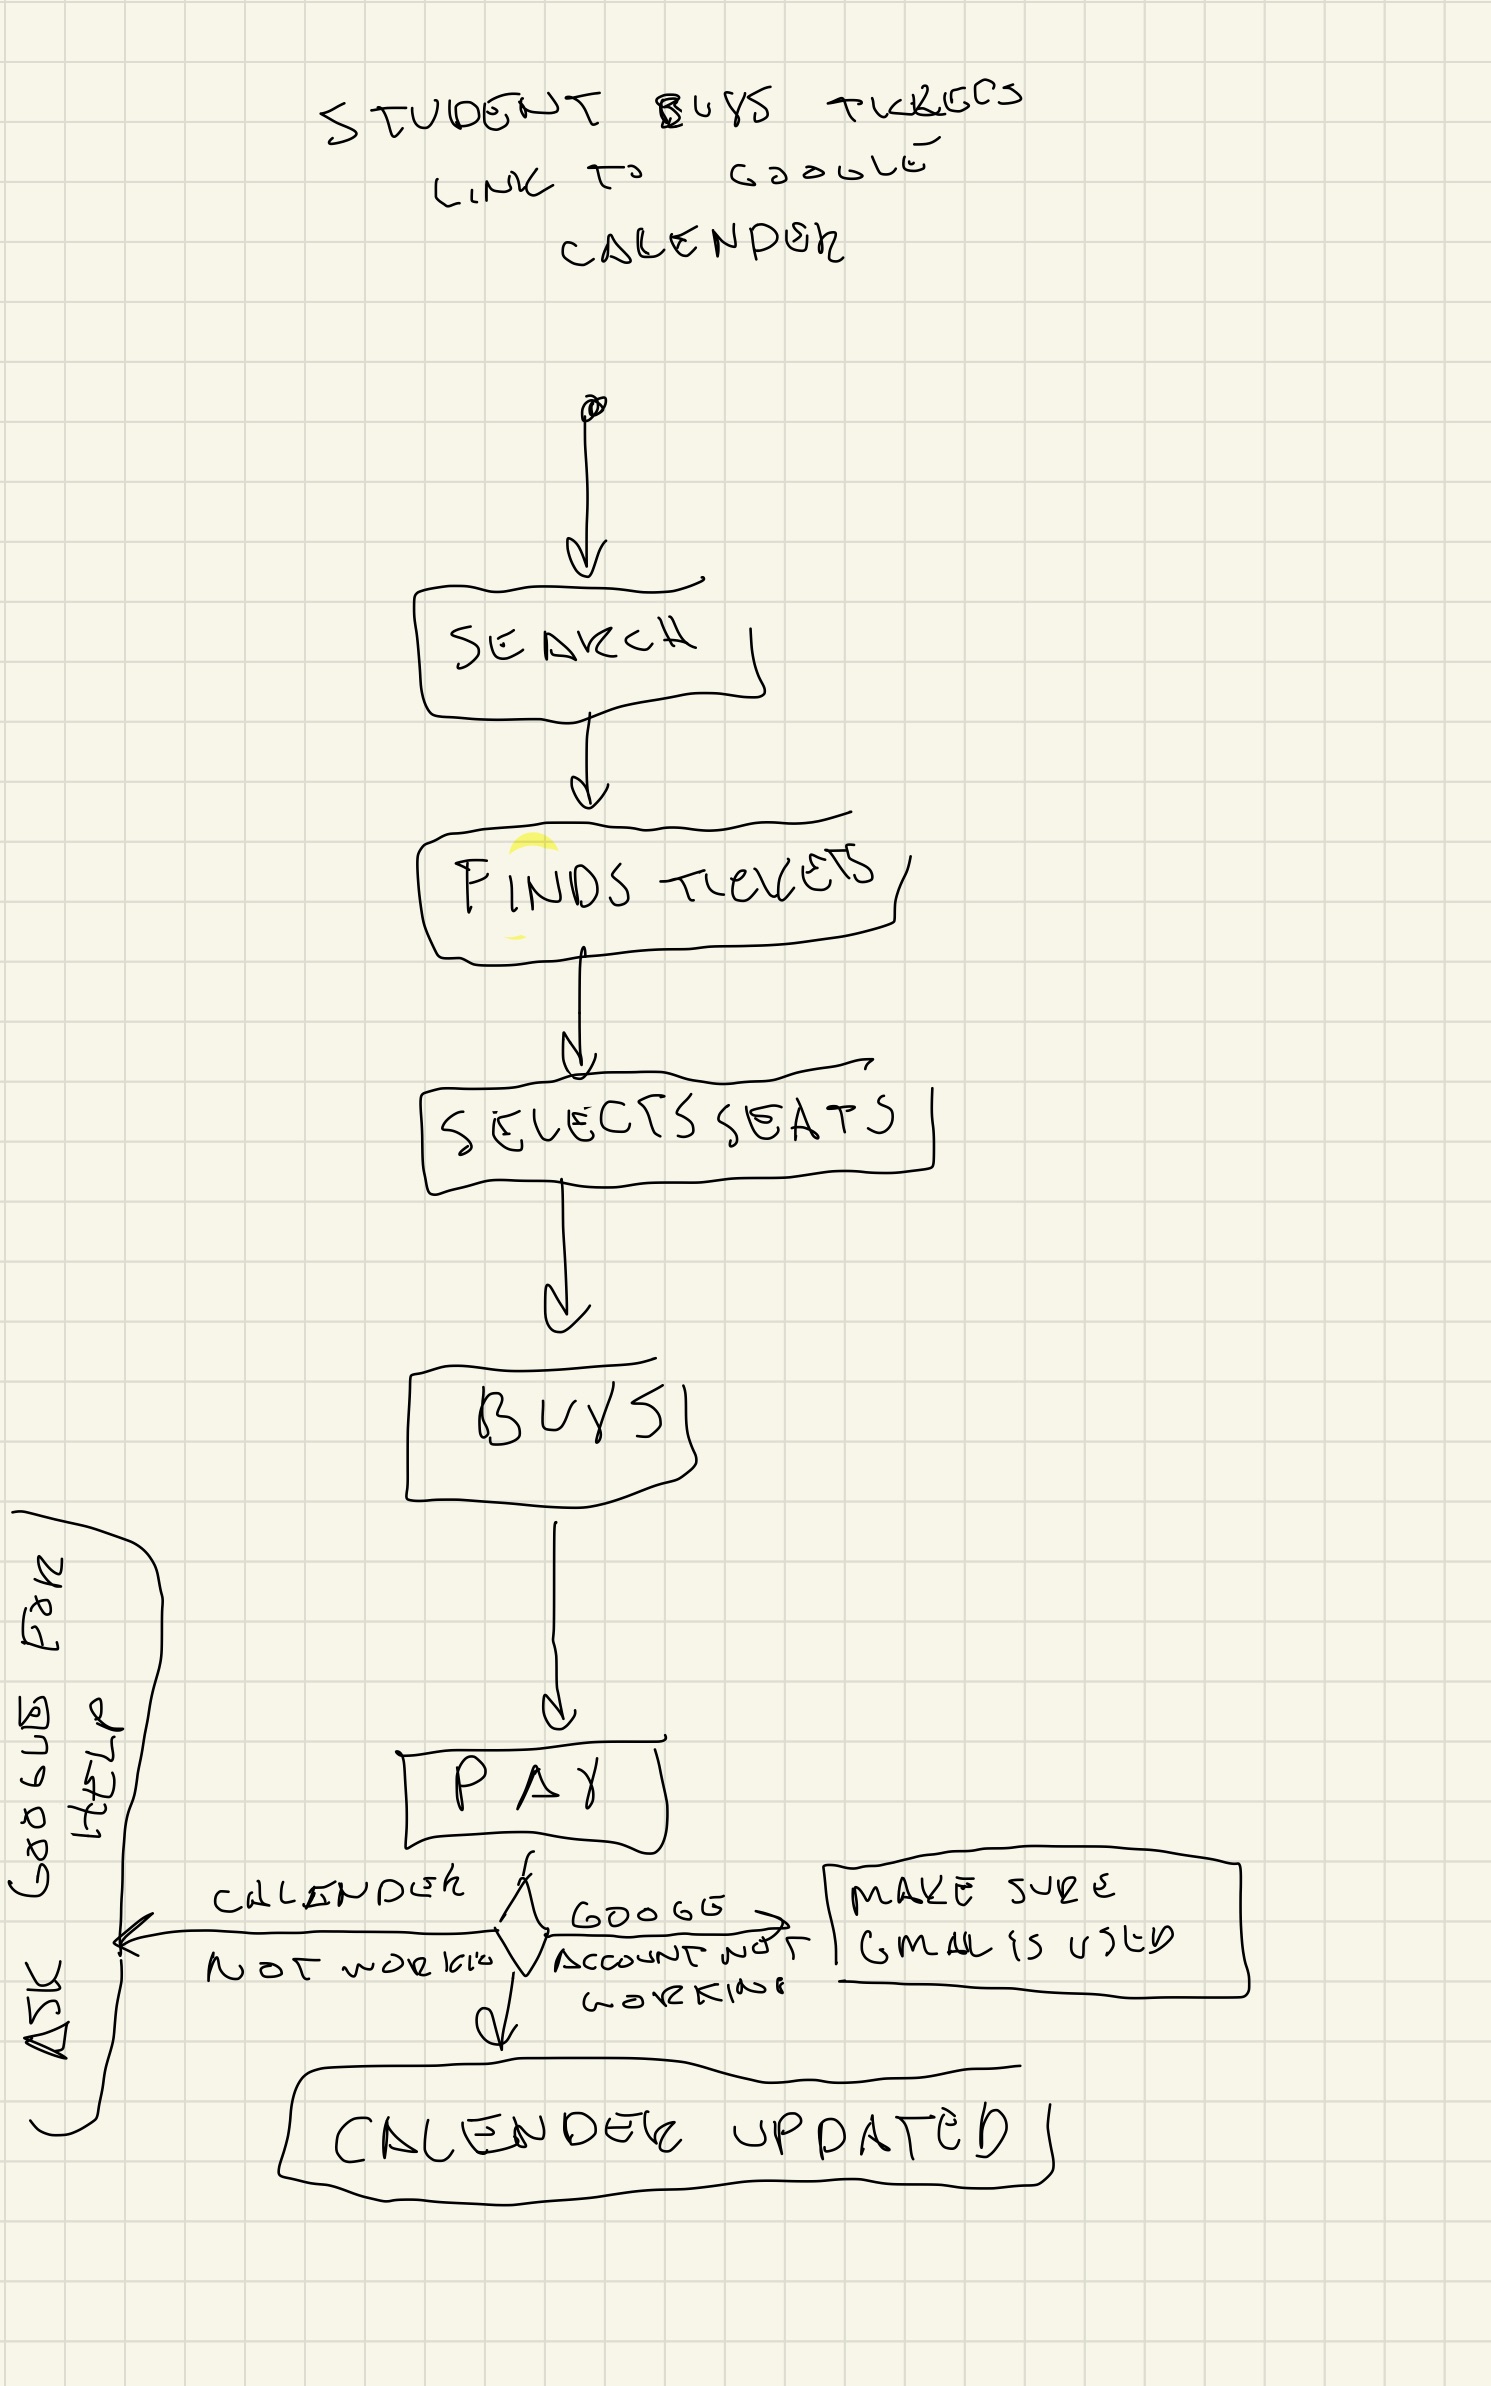 STUDENT BUYS TICKETS
LINK TO GOOGLE
CALENDER
SEARCH
FINDS TICKETS
SELECTS SEATS
BUYS
PAY
CALENDER
NOT WORKIG
GOOGE
ACCOUNT NOT
WORKING
MAKE SURE
GMAIL IS USED
ASK GOOGLE FOR
HELP
CALENDER UPDATED